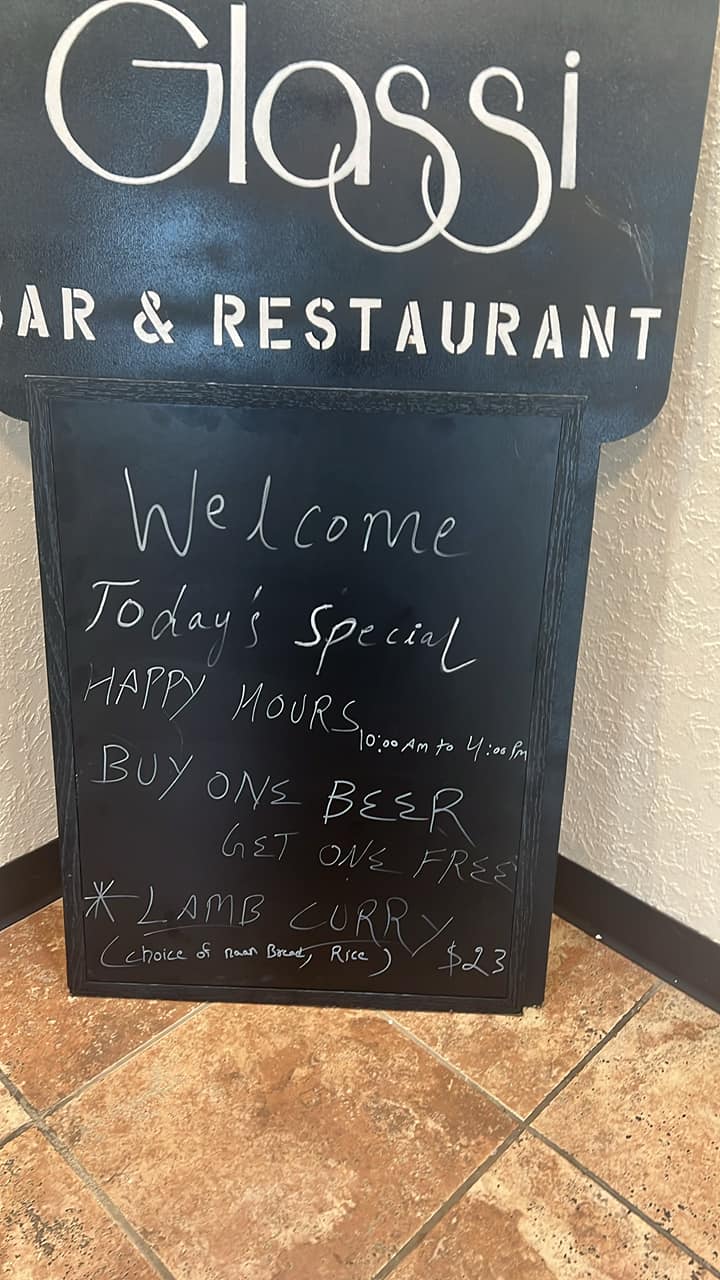 Glassi
BAR & RESTAURANT
Welcome
Today's Special
HAPPY HOURS
10:00 Am to 4:00 Pm
BUY ONE BEER
GET ONE FREE
* LAMB CURRY
(choice of naan Bread, Rice) $23